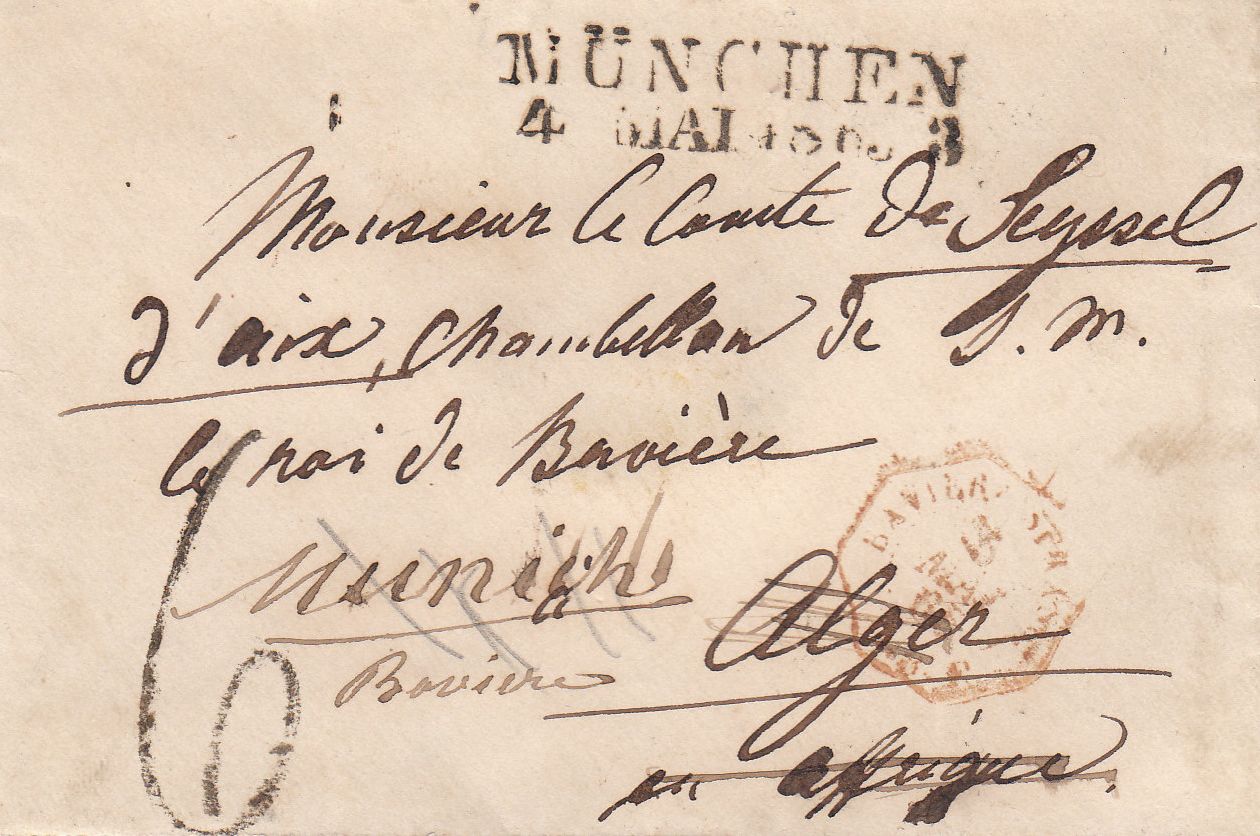 MÜNCHEN
4 MAI 186 3
Monsieur le Comte de Seyssel
d'aix, Chambellan de S. M.
le roi de Bavière
Munich
à
Alger
Baviere
en affrique
6
BAVIER